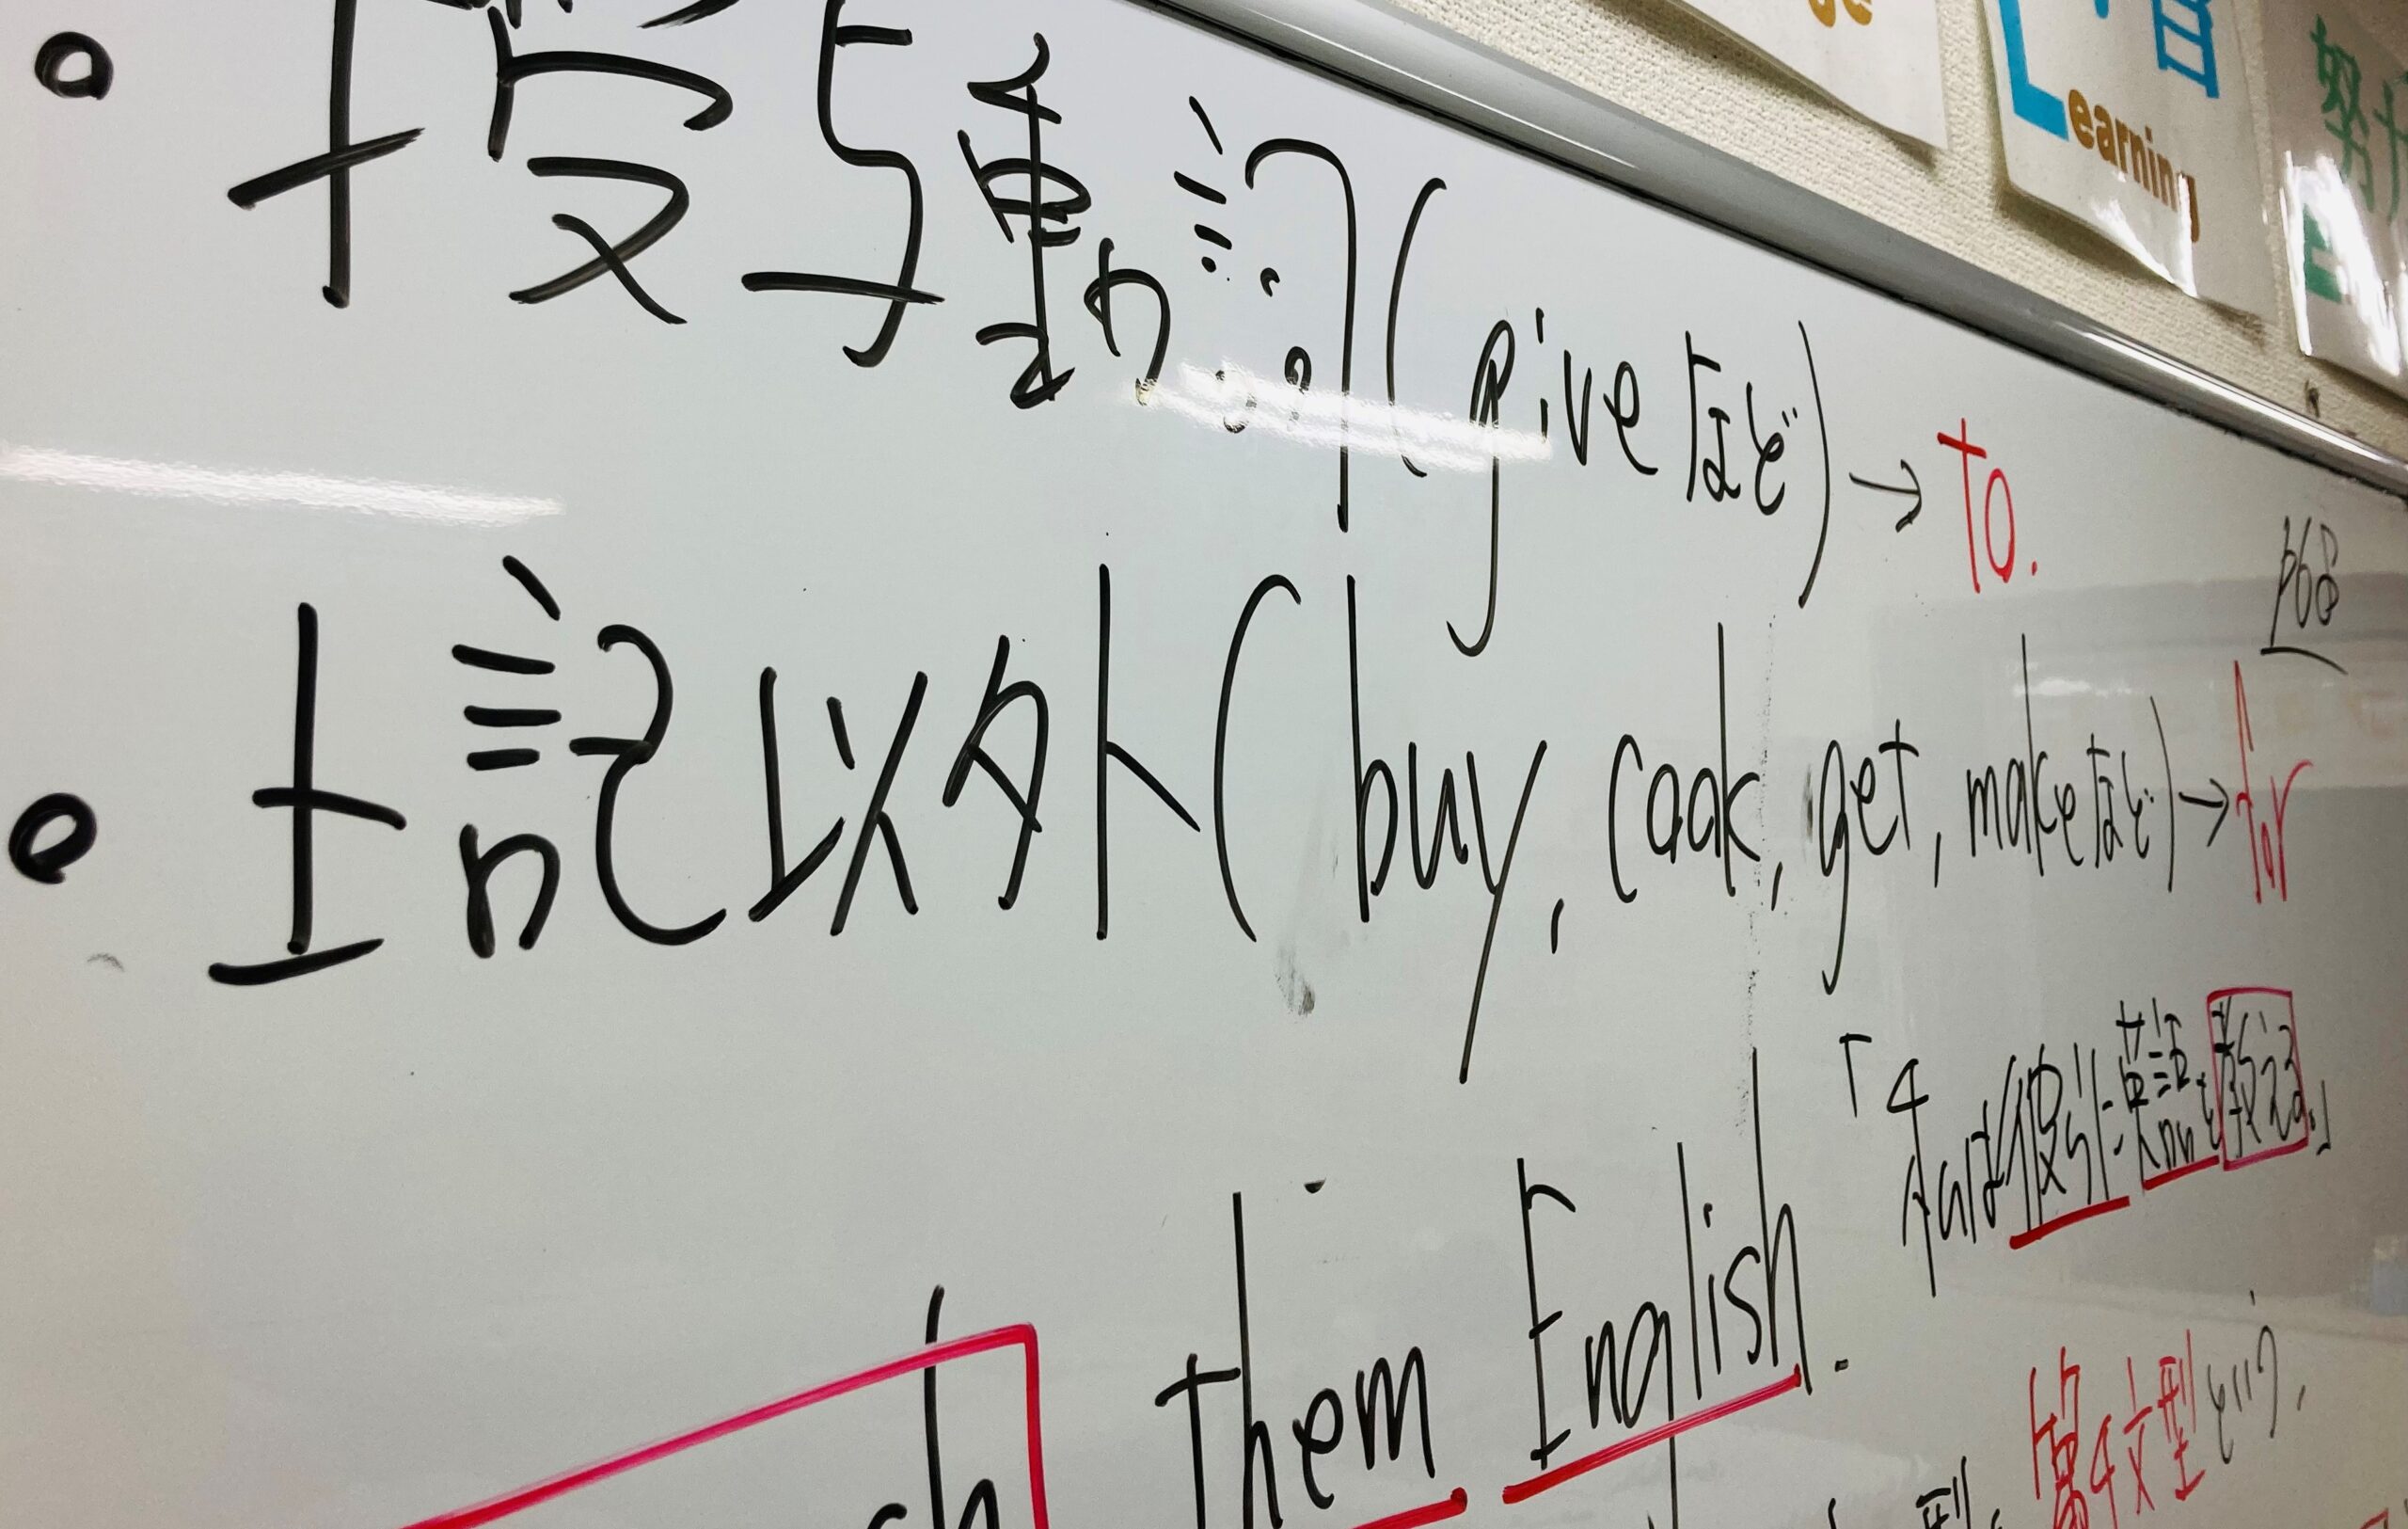 Learning
・授与動詞(giveなど)→to.
p68
・上記以外(buy, cook, get, makeなど)→for
「私は彼らに英語を教える。」
ch them English.
型
第4文型という。